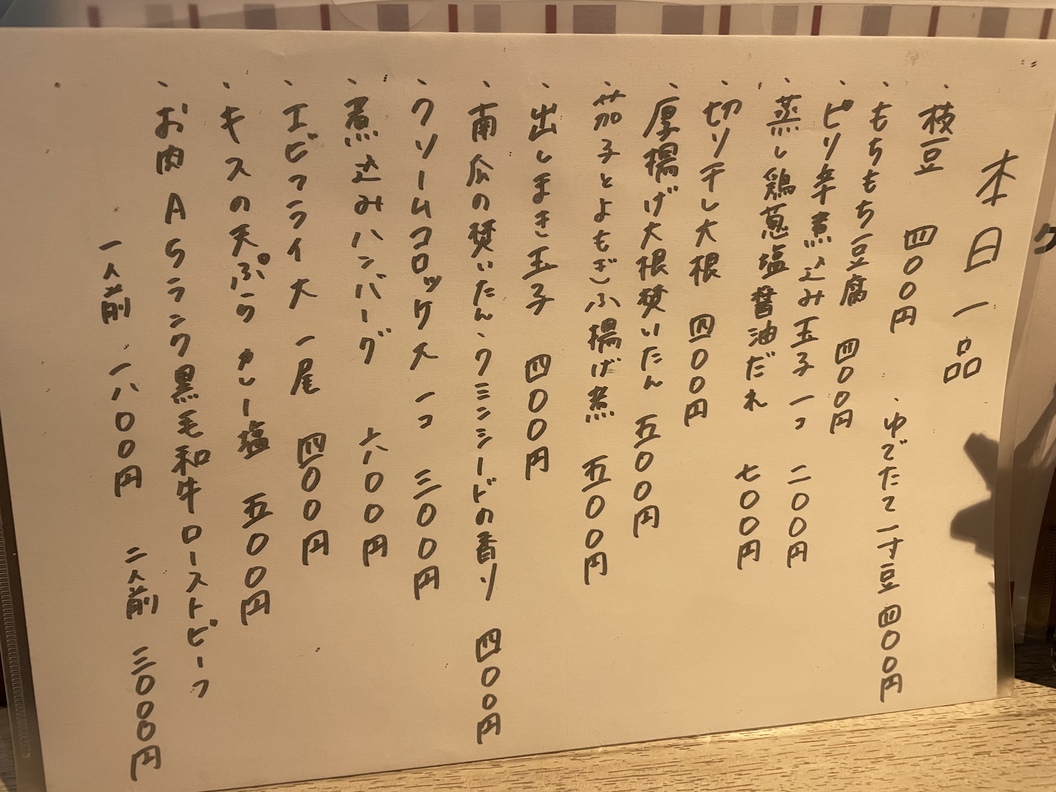 本日一品
・枝豆 四〇〇円
・ゆでたて一寸豆 四〇〇円
・もちもち豆腐 四〇〇円
・ピリ辛煮込み玉子 一コ 二〇〇円
・蒸し鶏葱塩醤油だれ 七〇〇円
・切り干し大根 四〇〇円
・厚揚げ大根焚いたん 五〇〇円
・茄子とよもぎふ揚げ煮 五〇〇円
・出しまき玉子 四〇〇円
・南瓜の焚いたん、クミンシードの香り 四〇〇円
・クリームコロッケ大 一コ 三〇〇円
・煮込みハンバーグ 六〇〇円
・エビフライ大 一尾 四〇〇円
・キスの天ぷら カレー塩 五〇〇円
・お肉 A5ランク黒毛和牛ローストビーフ
一人前 一八〇〇円 二人前 三〇〇〇円